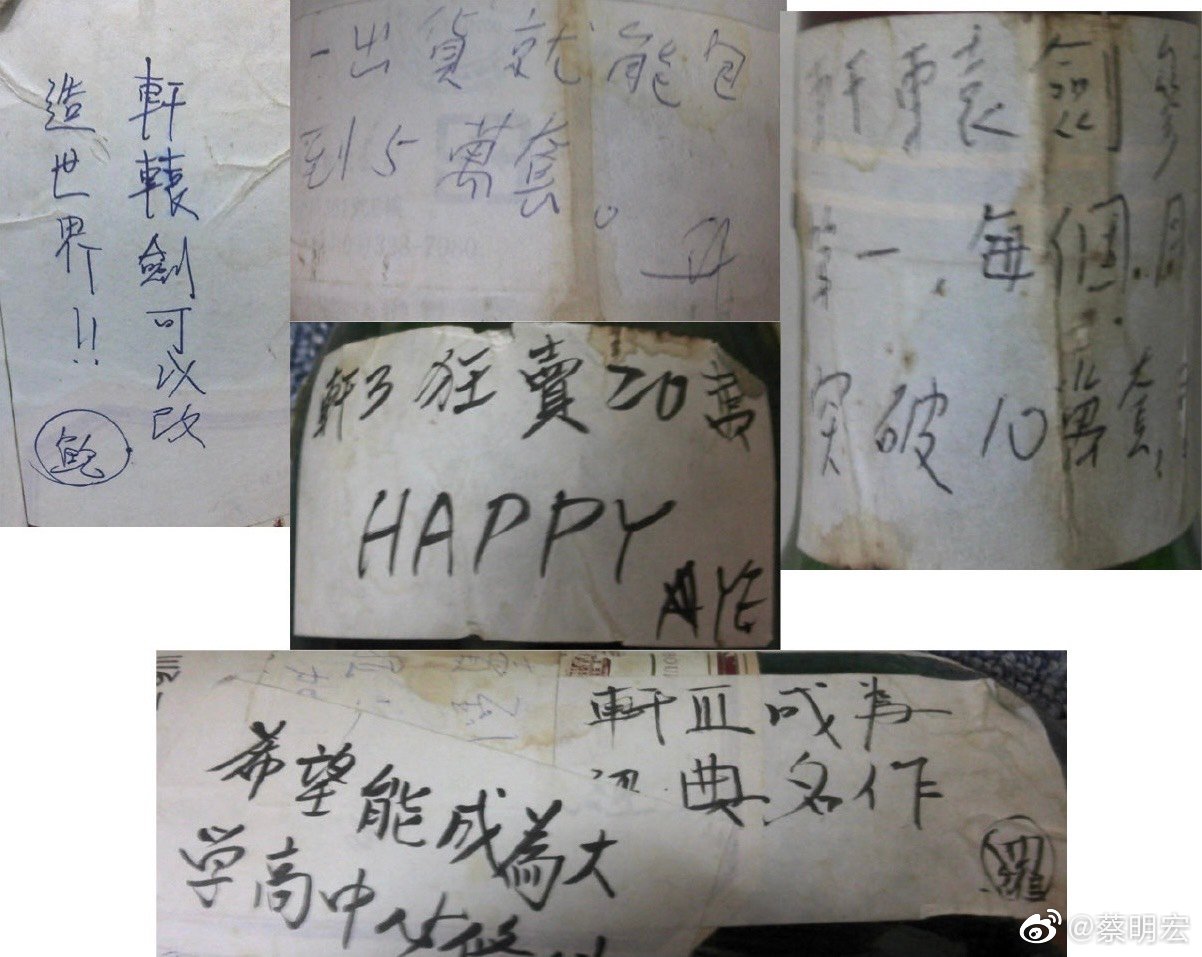 軒轅劍可以改
造世界!!
鮑
一出貨就能包
到5萬套。
軒轅劍參
第一,每個月
突破10萬套,
軒3狂賣20萬
HAPPY
AYE
軒III成為
典名作
羅
希望能成為大
学高中必修
@蔡明宏